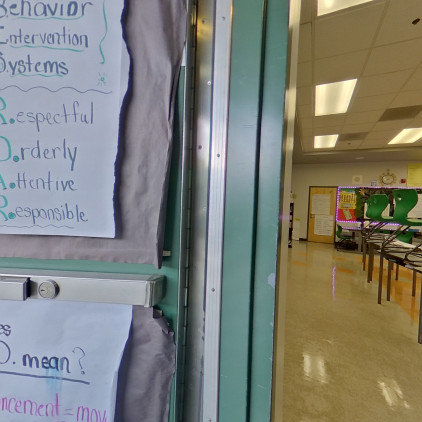 Behavior
Intervention
Systems
R.espectful
O.rderly
A.ttentive
R.esponsible
O. mean?